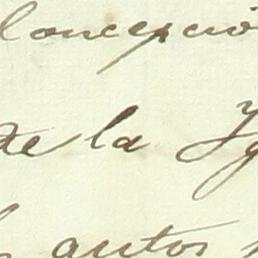 Concepción
de la Yg
autos